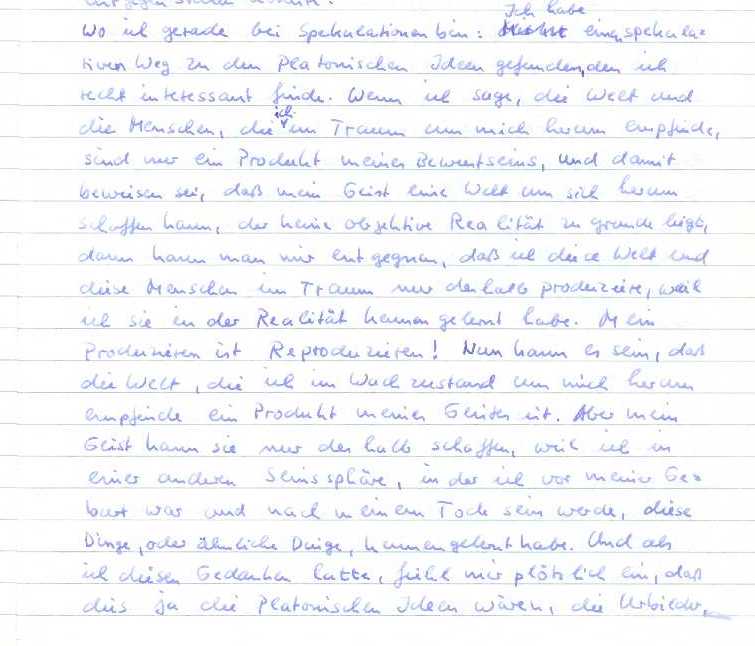 Ich habe
Wo ich gerade bei Spekulationen bin: einen spekula-
tiven Weg zu den Platonischen Ideen gefunden, den ich
recht interessant finde. Wenn ich sage, die Welt und
die Menschen, die ich im Traum um mich herum empfinde,
sind nur ein Produkt meines Bewusstseins, und damit
bewiesen sei, daß mein Geist eine Welt um sich herum
schaffen kann, der keine objektive Realität zu grunde liegt,
dann kann man mir entgegnen, daß ich diese Welt und
diese Menschen im Traum nur deshalb produziere, weil
ich sie in der Realität kennengelernt habe. Mein
Produzieren ist Reproduzieren! Nun kann es sein, daß
die Welt, die ich im Wachzustand um mich herum
empfinde ein Produkt meines Geistes ist. Aber mein
Geist kann sie nur deshalb schaffen, weil ich in
einer anderen Seinssphäre, in der ich vor meiner Ge-
burt war und nach meinem Tode sein werde, diese
Dinge, oder ähnliche Dinge, kennengelernt habe. Und als
ich diesen Gedanken hatte, fiehl mir plötzlich ein, daß
dies ja die Platonischen Ideen wären, die Urbilder,